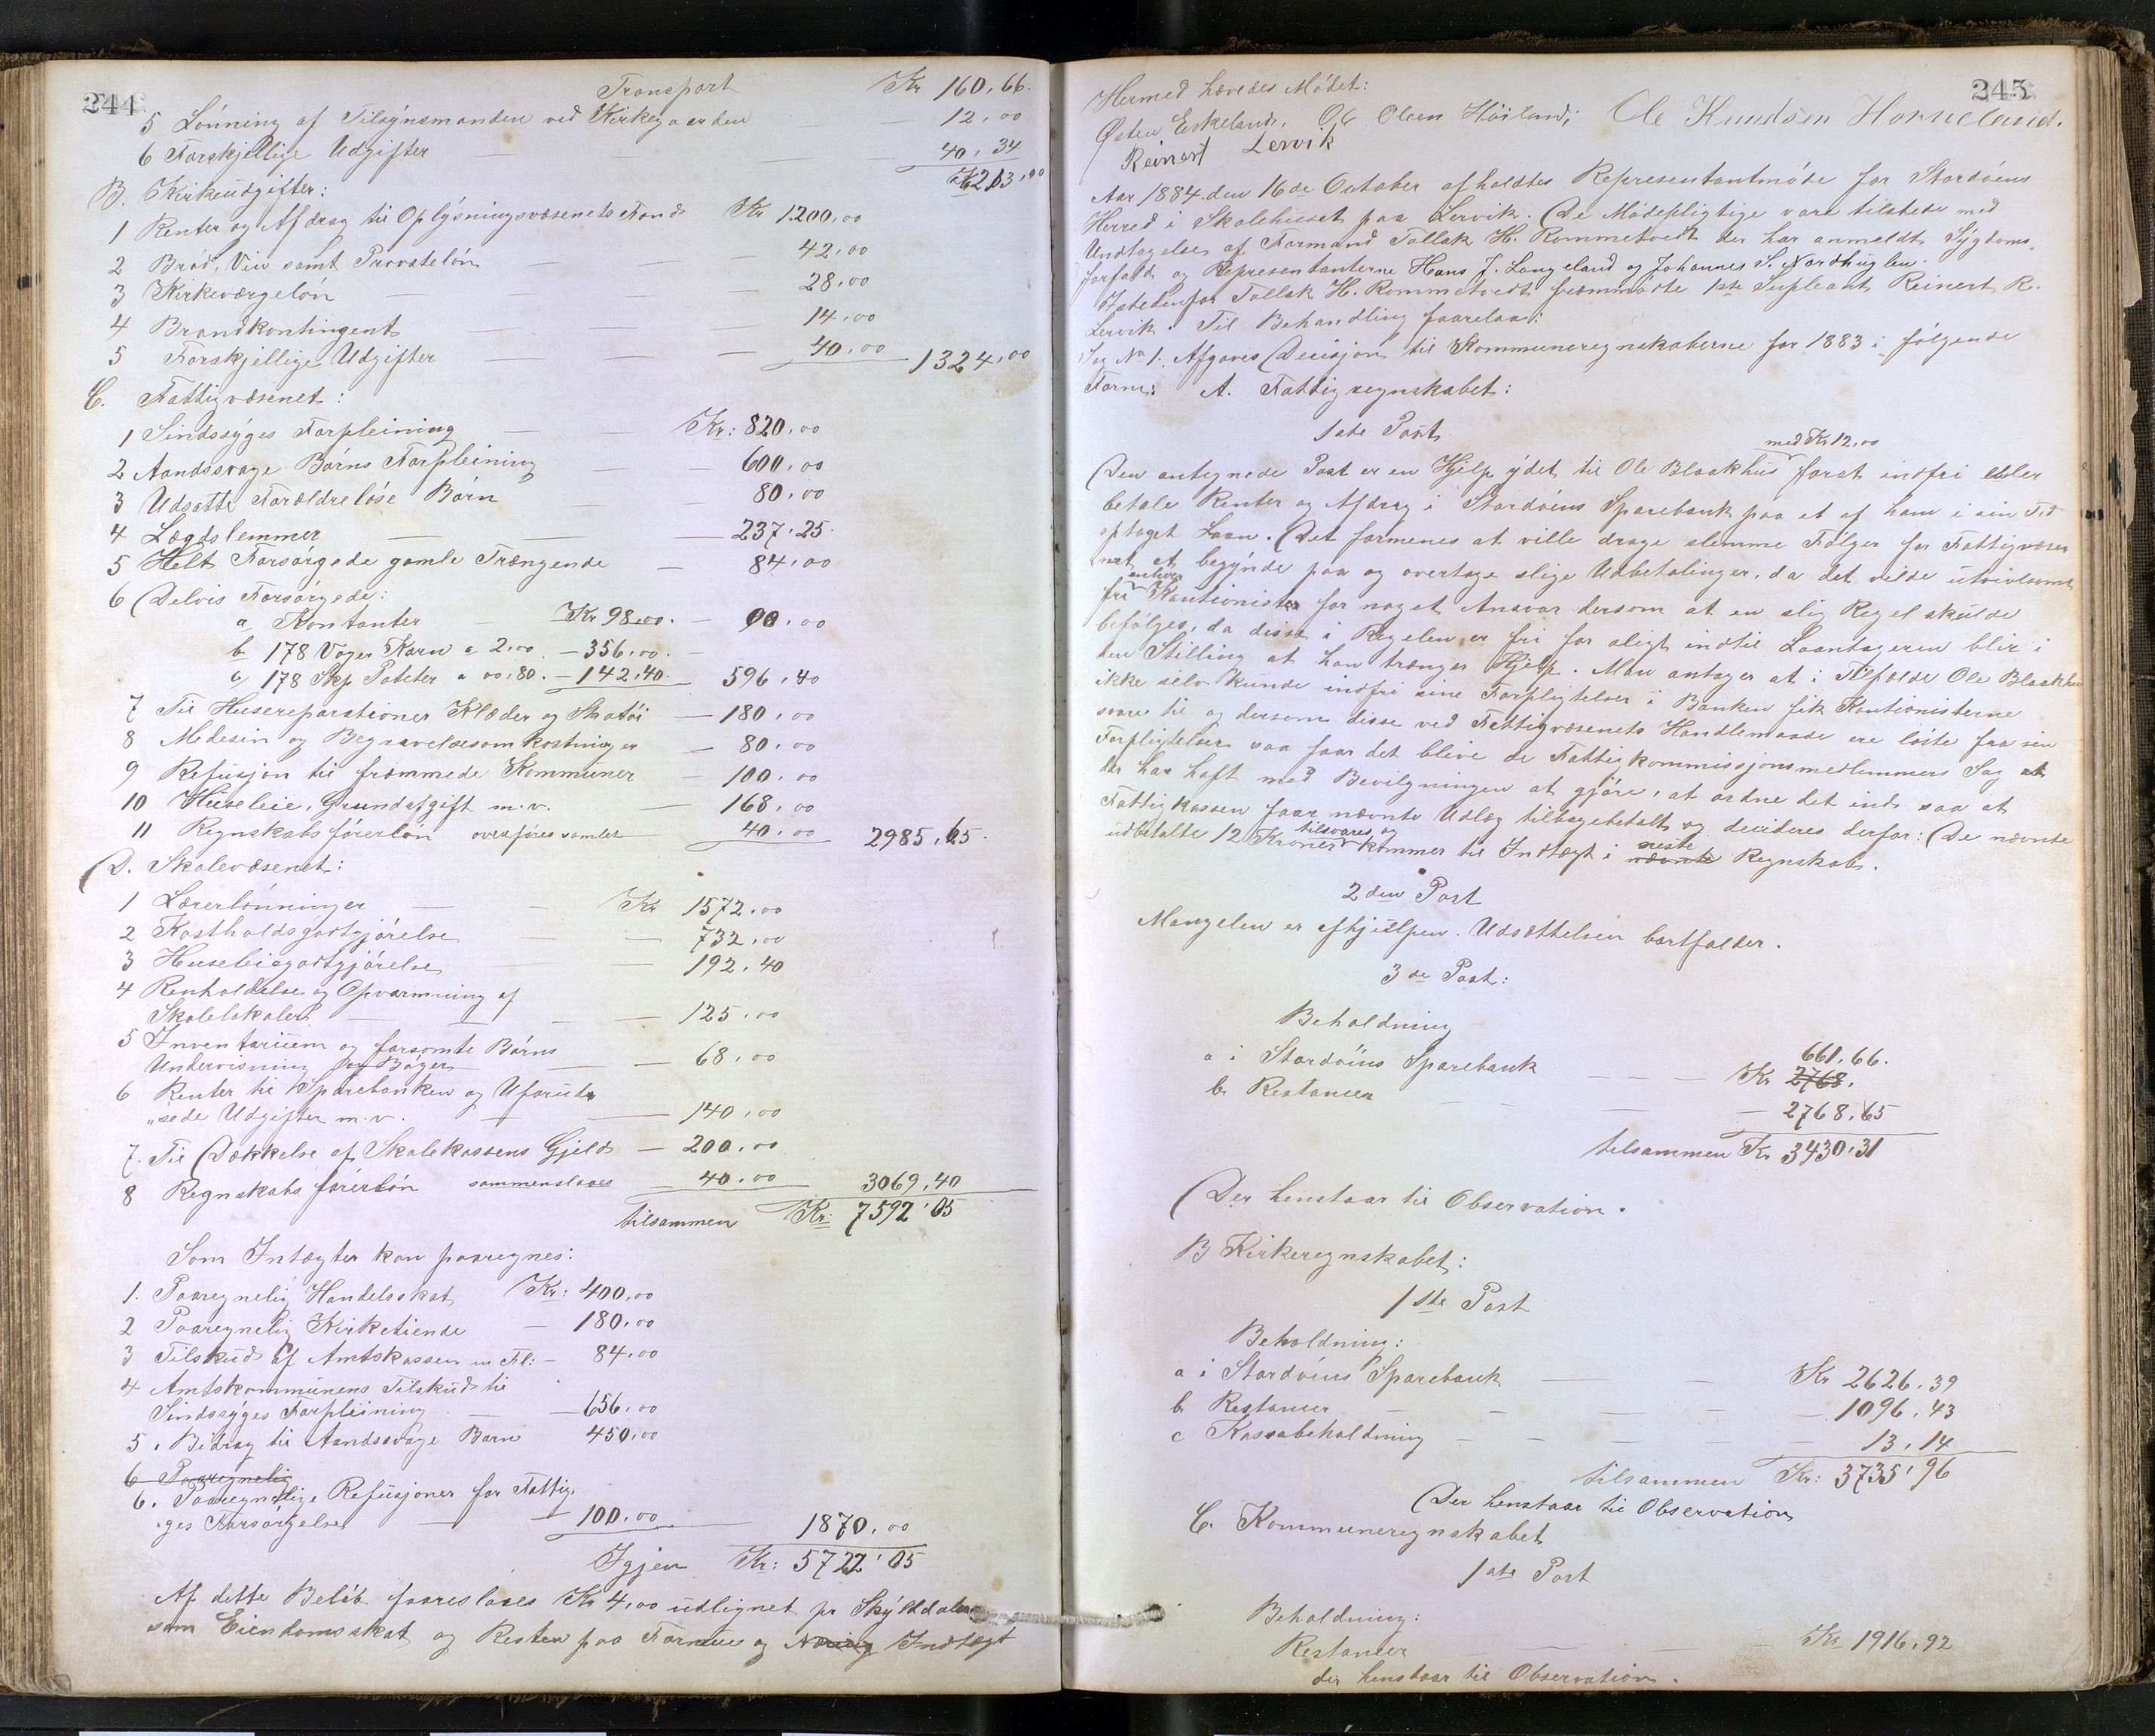 244
Transport Kr 160,66.
5 Lønning af Tilsynsmanden ved Kirkegaarden — 12,00
6 Forskjellige Udgifter — 40,34
213,00
B. Kirkeudgifter:
1 Renter og Afdrag til Oplysningsvæsenets Fond Kr 1200,00
2 Brød, Vin samt Provsteløn — 42,00
3 Kirkeværgeløn — 28,00
4 Brandkontingent — 14,00
5 Forskjellige Udgifter — 40,00 1324,00
C. Fattigvæsenet:
1 Sindssyges Forpleining — Kr: 820,00
2 Aandssvage Børns Forpleining — 600,00
3 Udsatte Forældreløse Børn — 80,00
4 Lægdslemmer — 237,25
5 Helt Forsørgede gamle Trængende — 84,00
6 Delvis Forsørgede:
a Kontanter Kr 98,00. — 00,00
b 178 Voger Korn a 2,00 — 356,00.
c 178 Skp Poteter a 00,80. — 142,40. 596,40
7 Til Husereparationer Klæder og Skotøi — 180,00
8 Medesin og Begravelsesomkostninger — 80,00
9 Refusjon til fræmmede Kommuner — 100,00
10 Huseleie, Grundafgift m.v. — 168,00
11 Regnskabsførerløn overføres samlet 40,00 2985,65.
D. Skolevæsenet:
1 Lærerlønninger — Kr 1572,00
2 Kostholdsgodtgjørelse — 732,00
3 Huseleiegodtgjørelse — 192,40
4 Renholdelse og Opvarmning af
Skolelokaler — 125,00
5 Inventarium og forsømte Børns
Undervisning og Bøger — 68,00
6 Renter til Sparebanken og Uforud-
„sede Udgifter m.v. — 140,00
7. Til Dækkelse af Skolekassens Gjeld — 200,00
8 Regnskabsførerløn sammenslaaes — 40,00 3069,40
tilsammen Kr: 7592,05
Som Intægter kan paaregnes:
1. Paaregnelig Handelsskat Kr: 400,00
2 Paaregnelig Kirketiende — 180,00
3 Tilskud af Amtskassen — 84,00
4 Amtskommunens Tilskud til
Sindssyges Forpleining — 656,00
5. Bidrag til Aandssvage Børn 450,00
6 Paaregnelig
6. Paaregnelige Refusjoner for Fattig-
ges Forsørgelse — 100,00 1870,00
Igjen Kr: 5722,05
Af dette Beløb foareslaaes Kr 4,00 udlignet pr Skylddaler
som Eiendomsskat og Resten paa Formue og Næring Indtægt
245
Hermed hævedes Mødet:
Østen Eskeland, Ole Olsen Høiland; Ole Knudsen Horneland.
Reinert Lervik
Aar 1884 den 16de October afholdtes Representantmøde for Stordøens
Herred i Skolehuset paa Lervik. De Mødepligtige vare tilstede med
Undtagelse af Formand Tollak H. Rommetvedt der har anmeldt Sygdoms-
forfald og Representanterne Hans J. Langeland og Johannes S. Nordhuglen.
Istedenfor Tollak H. Rommetvedt fræmmødte 1ste Supleant Reinert R.
Lervik. Til Behandling foarelaa:
Sag No 1. Afgaves Decisjon til Kommuneregnskaberne for 1883 i følgende
Form: A. Fattigregnskabet:
1ste Post
med Kr 12,00
Den antegnede Post er en Hjelp ydet til Ole Blaakhus forat indfri eller
betale Renter og Afdrag i Stordøens Sparebank paa et af ham i sin Tid
optaget Laan. Det formenes at ville drage slemme Følger for Fattigvæse-
net at begynde paa og overtage slige Udbetalinger, da det vilde utvivlsomt
fri enhver Kautionister for noget Ansvar dersom at en slig Regel skulde
befølges, da disse i Regelen er fri for sligt indtil Laantageren blir i
den Stilling at han trænger Hjelp. Man antager at i Tilfælde Ole Blaakhus
ikke selv kunde indfri sine Forpligtelser i Banken fik Kautionisterne
svare til og dersom disse ved Fattigvæsenets Handlemaade ere løste fra sin
Forpligtelser saa faar det blive de Fattigkommissjonsmedlemmers Sag
der har haft med Bevilgningen at gjøre, at ordne det inds saa at
Fattigkassen faar nævnte Udlæg tilbagebetalt og decideres derfor: De nævnte
udbetalte 12 Kroner tilsvares og kommer til Indtægt i nævnte neste Regnskab.
2den Post
Mangelen er afhjulpen. Udsættelsen bortfalder.
3de Post:
Beholdning
a i Stordøens Sparebank — Kr 2768. 661,66.
b. Restancer — 2768,65
tilsammen Kr 3430,31
Der henstaar til Observation.
B Kirkeregnskabet:
1ste Post
Beholdning:
a i Stordøens Sparebank — Kr 2626,39
b Restancer — 1096,43
c Kassabeholdning — 13,14
tilsammen Kr: 3735,96
Der henstaar til Observation
C. Kommuneregnskabet
1ste Post
Beholdning:
Restancer — Kr 1916,92
der henstaar til Observation.